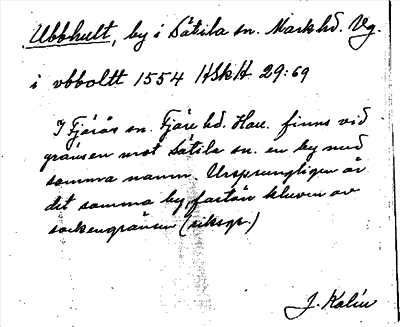 Ubbhult, by i Sätila sn. Mark hd. Vg.
i vbboltt 1554 HSkH 29:69
I Fjärås sn. Fjäre hd. Hall. finns vid
gränsen mot Sätila sn. en by med
samma namn. Ursprungligen är
det samma by, fastän kluven av
sockengränsen (riksgr.)
J. Kalén